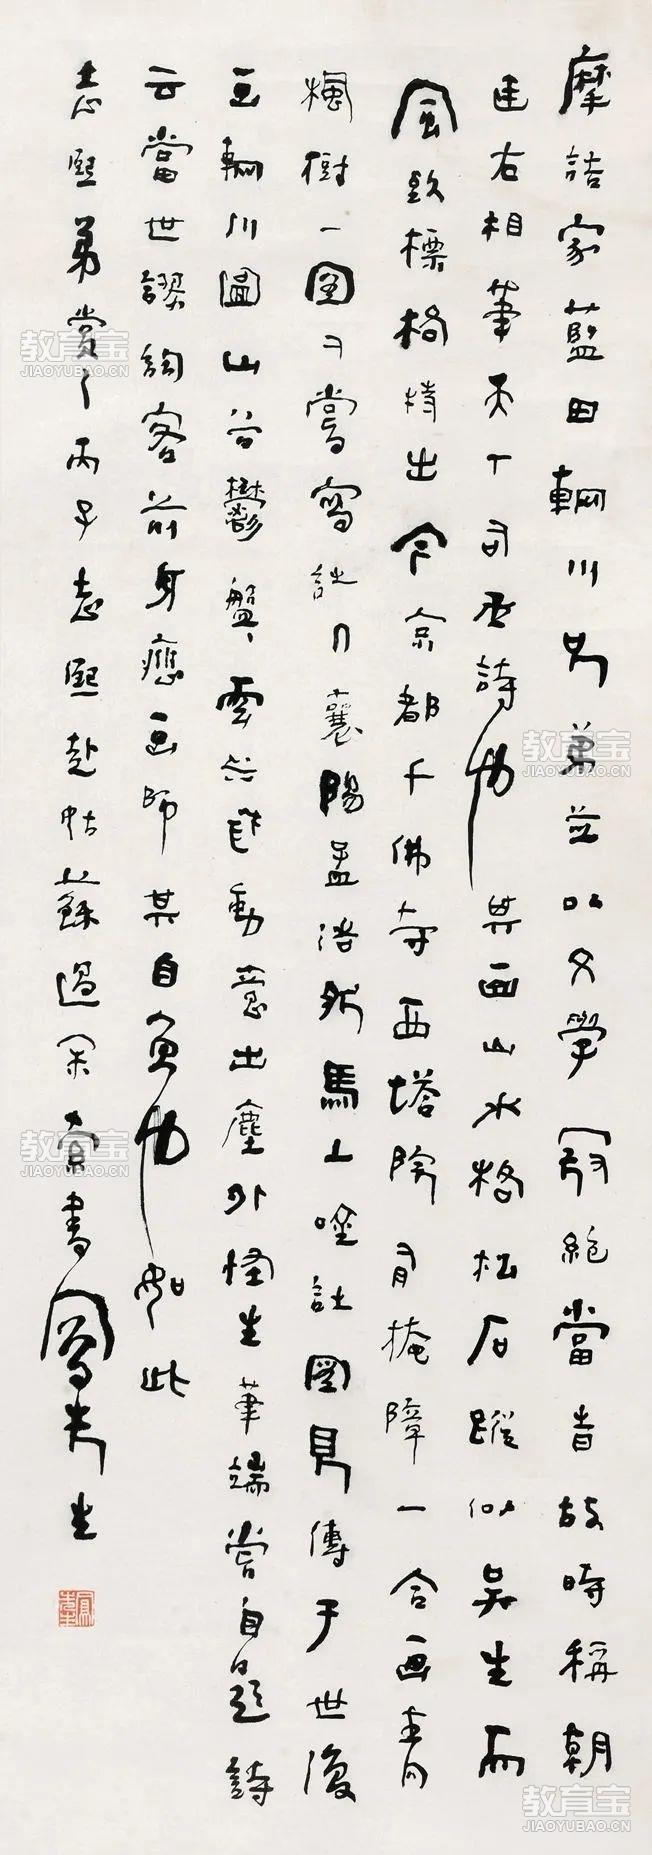 摩詰家藍田輞川兄弟並以文學冠絕當時故時稱朝
廷右相筆天下司丞詩也其画山水格松石蹤似吳生而
風致標格特出今京都千佛寺西塔院有掩障一合画青
楓樹一圖又嘗寫詩人襄陽孟浩然馬上吟詩圖見傳于世復
画輞川圖山谷鬱盤雲水飛動意出塵外怪生筆端嘗自題詩
云當世謬詞客前身應画師其自負也如此
志熙弟賞之丙子志熙赴姑蘇過余索書鳳先生
教育宝
JIAOYUBAO.CN
教育宝
JIAOYUBAO.CN
教育宝
JIAOYUBAO.CN
教育宝
JIAOYUBAO.CN